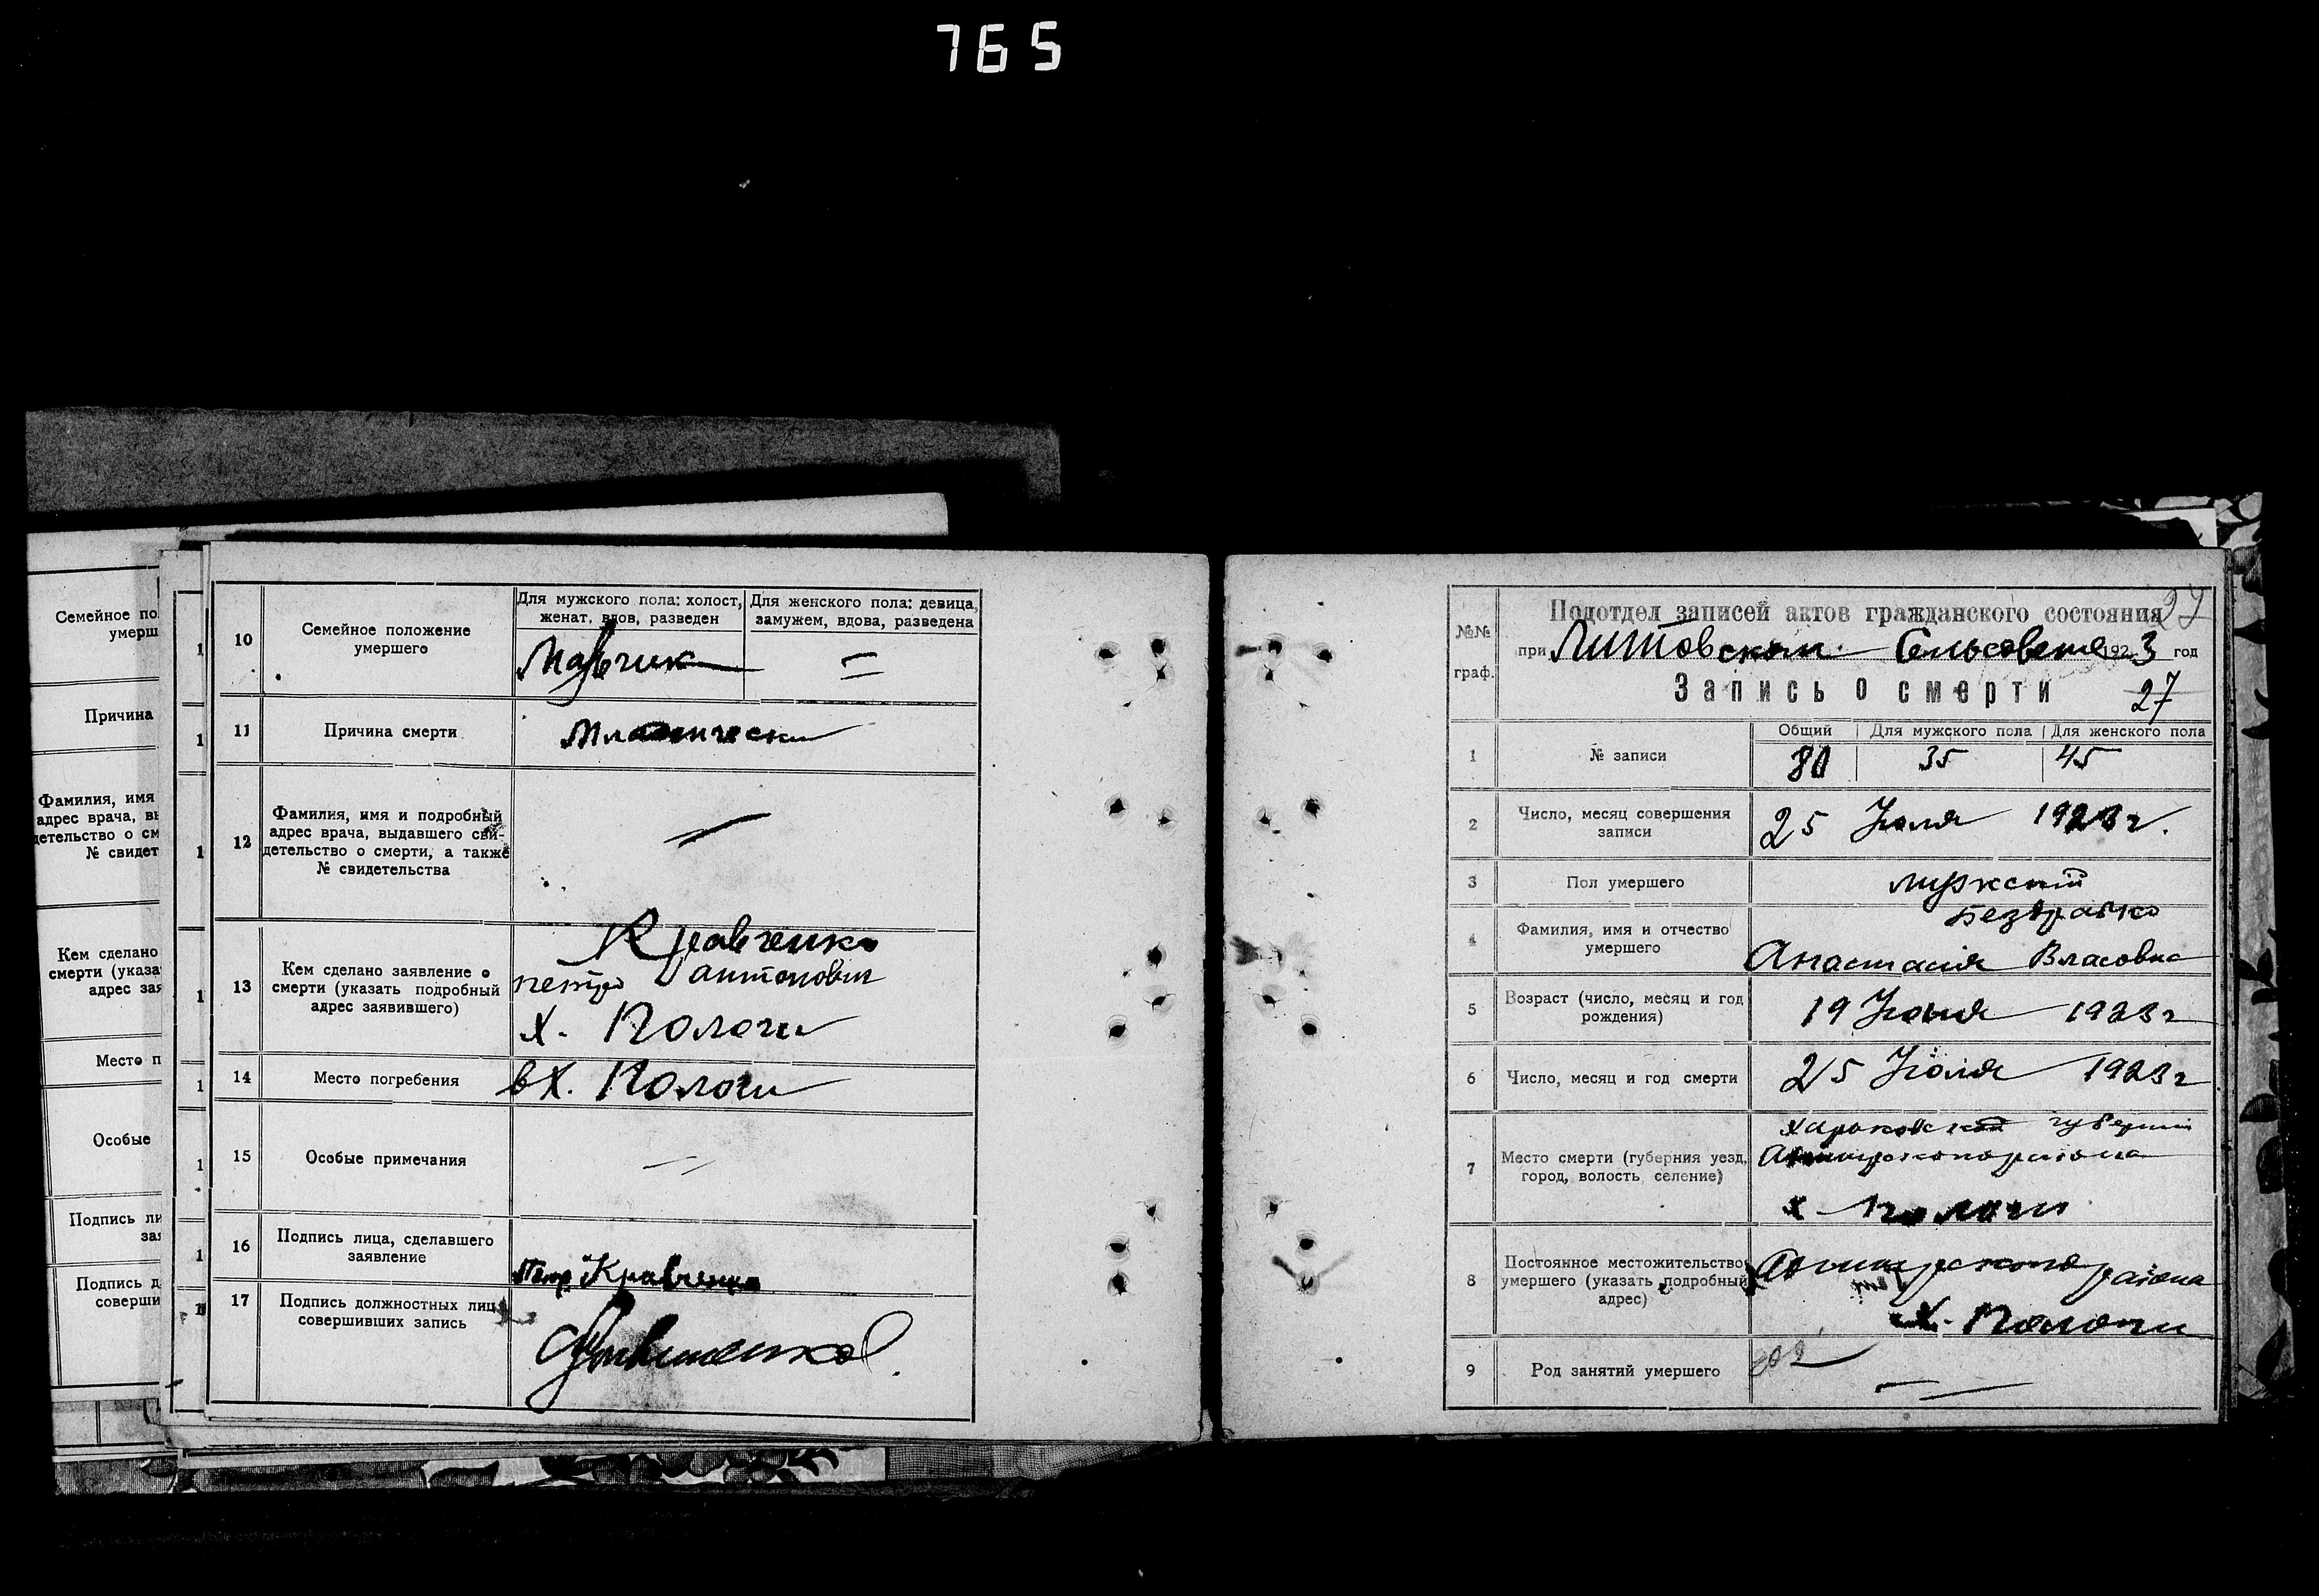 765
Семейное по
умерш
Причина
Фамилия, имя
адрес врача, вы
детельство о см
№ свидет
Кем сделано
смерти (указа
адрес зая
Место п
Особые
Подпись ли
зая
Подпись д
соверши
10
Семейное положение
умершего
Для мужского пола: холост,
женат, вдов, разведен
Для женского пола: девица,
замужем, вдова, разведена
Мальчик
11
Причина смерти
Младенчески
12
Фамилия, имя и подробный
адрес врача, выдавшего сви-
детельство о смерти, а также
№ свидетельства
13
Кем сделано заявление о
смерти (указать подробный
адрес заявившего)
Кравченко
петро антонович
х. Пологи
14
Место погребения
в х. Пологи
15
Особые примечания
16
Подпись лица, сделавшего
заявление
Петр Кравченко
17
Подпись должностных лиц,
совершивших запись
27
№№
граф.
Подотдел записей актов гражданского состояния
при Литовском Сельсовете 1923 год
Запись о смерти
27
1
№ записи
Общий
Для мужского пола
Для женского пола
80
35
45
2
Число, месяц совершения
записи
25 Июля 1923 г.
3
Пол умершего
мужский
4
Фамилия, имя и отчество
умершего
Анастасия Власовна
5
Возраст (число, месяц и год
рождения)
19 Июня 1923 г
6
Число, месяц и год смерти
25 Июля 1923 г
7
Место смерти (губерния уезд,
город, волость селение)
харьковской губернии
района
х Пологи
8
Постоянное местожительство
умершего (указать подробный
адрес)
района
х. Пологи
9
Род занятий умершего